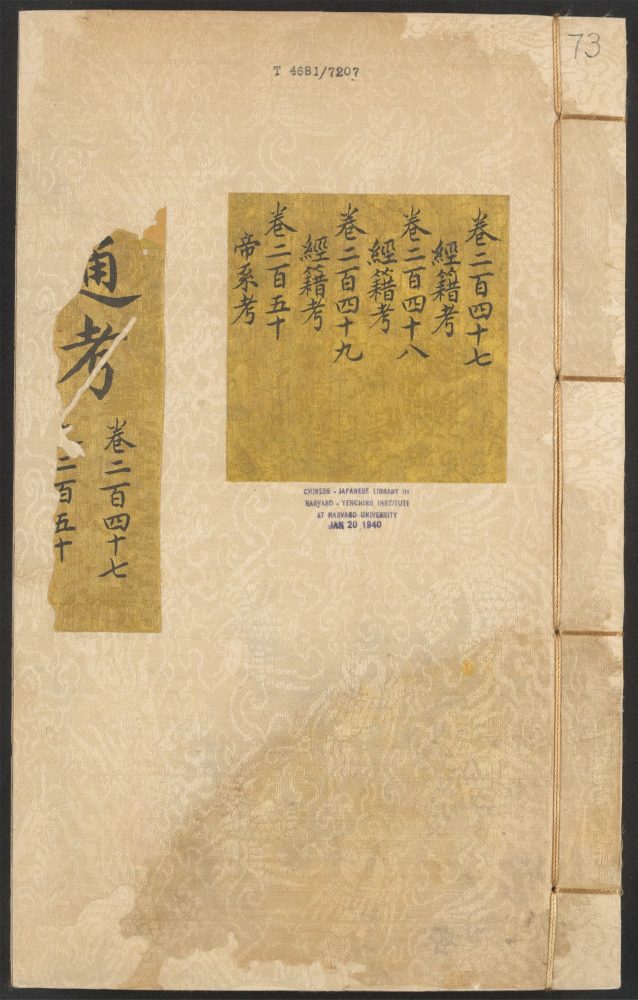 T 4681/7207
73
卷二百四十七
經籍考
卷二百四十八
經籍考
卷二百四十九
經籍考
卷二百五十
帝系考
通考
卷二百四十七
二百五十
CHINESE - JAPANESE LIBRARY OF
HARVARD - YENCHING INSTITUTE
AT HARVARD UNIVERSITY
JAN 20 1940